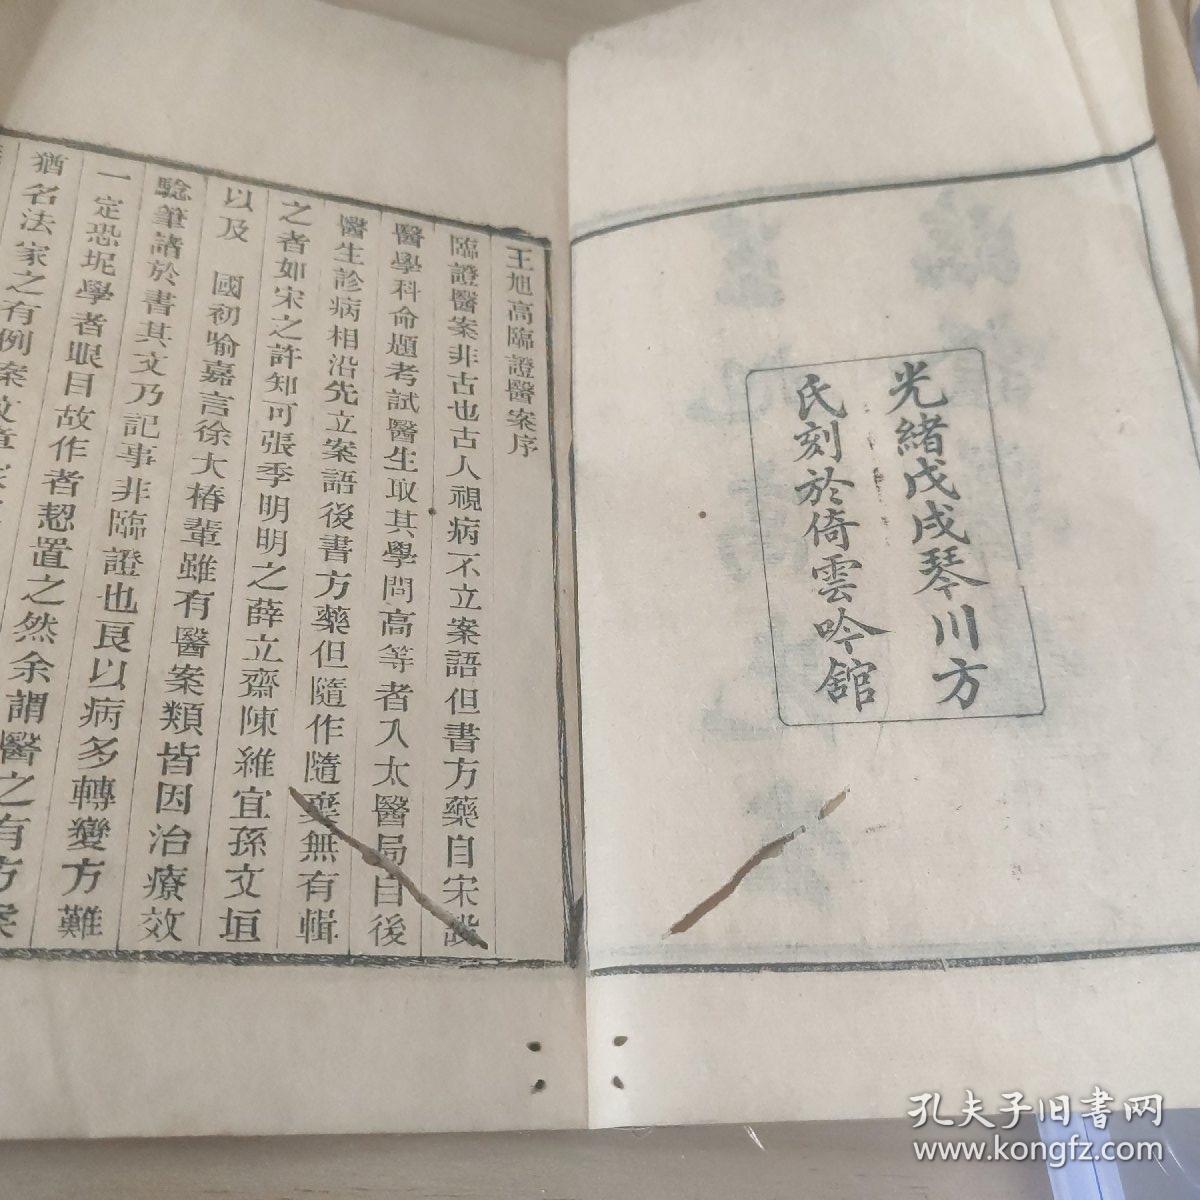 光緒戊戌琴川方
氏刻於倚雲吟館
王旭高臨證醫案序
臨證醫案非古也古人視病不立案語但書方藥自宋設
醫學科命題考試醫生取其學問高等者入太醫局自後
醫生診病相沿先立案語後書方藥但隨作隨棄無有輯
之者如宋之許知可張季明明之薛立齋陳維宜孫文垣
以及 國初喻嘉言徐大椿輩雖有醫案類皆因治療效
驗筆諸於書其文乃記事非臨證也良以病多轉變方難
一定恐坭學者眼目故作者恝置之然余謂醫之有方案
猶名法家之有例案文章家
孔夫子旧书网
www.kongfz.com